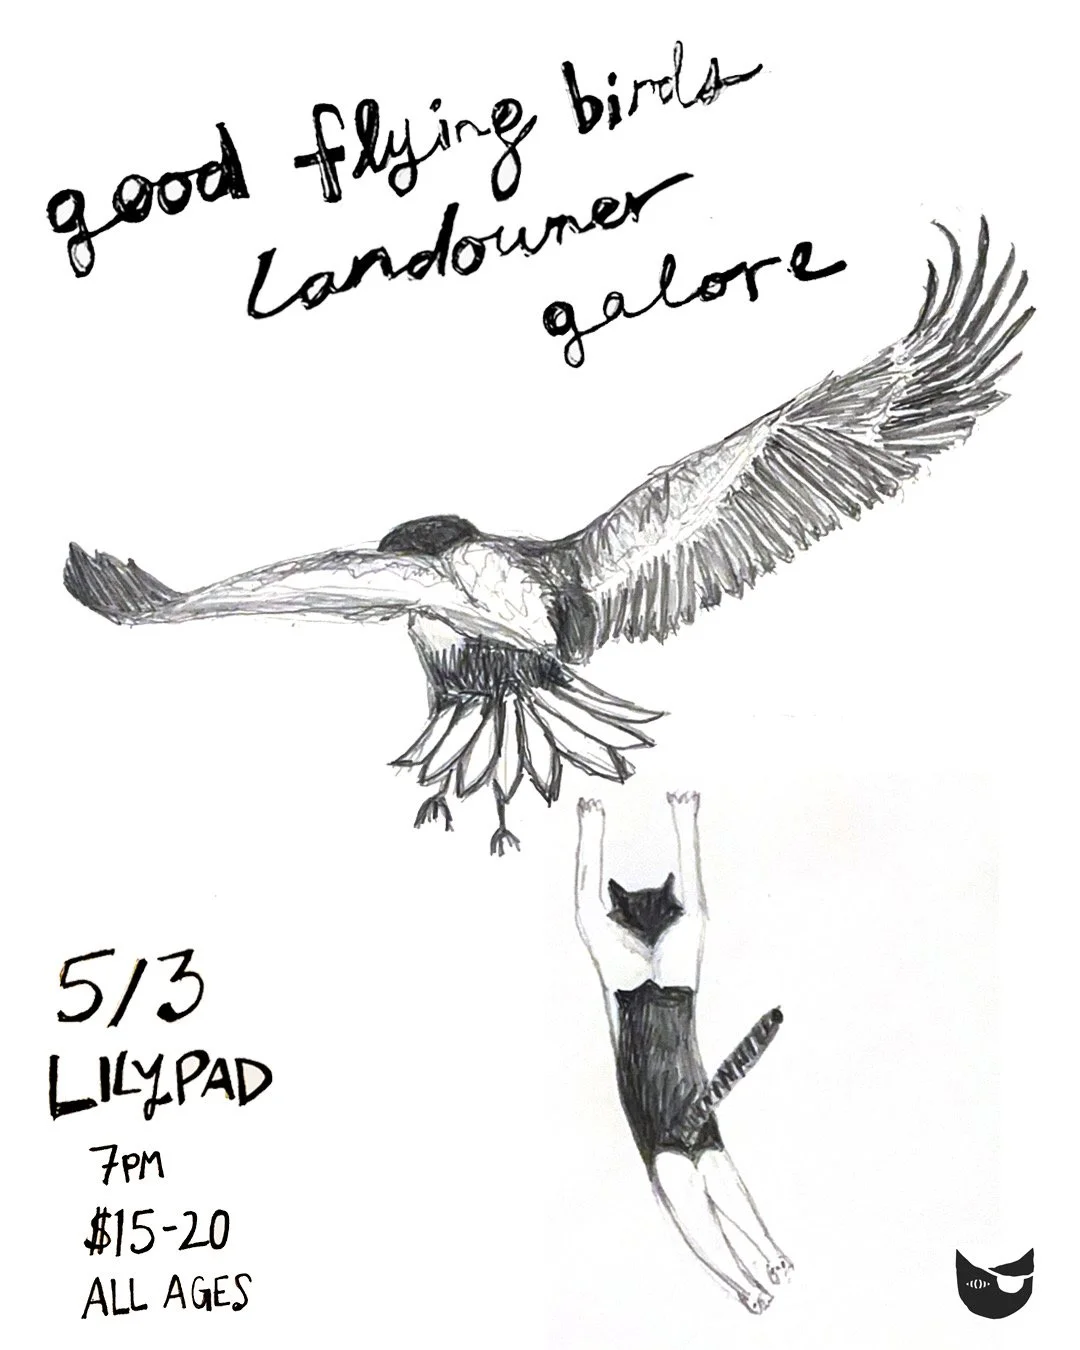 good flying birds
Landowner
galore
5/3
LILYPAD
7PM
$15-20
ALL AGES